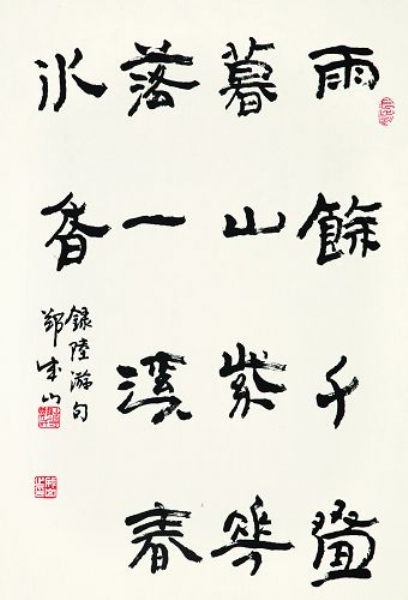 雨餘千疊
暮山紫花
落一溪春
水香
録陸游句
鄭成山